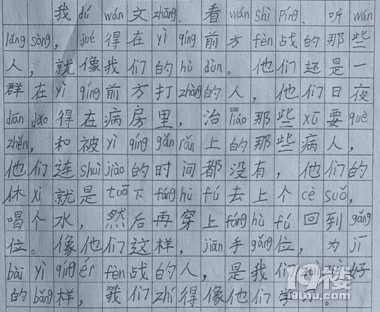 我dú wán文zhāng、看wán shì píng、听wán
láng sòng,jué得在yì qíng前方fèn战的那些
人,就像我们的hù dùn。他们还是一
群在yì qíng前方打zhàng的人,他们日夜
diān dǎo得在病房里,治liáo那些xū要què
zhěn,和被yì qíng gǎn rǎn上的那些病人,
他们连shuì jiào的时间都没有,他们的
休xi就是tuō下fáng hù fú去上个cè suǒ,
喝个水,然后再穿上fáng hù fú回到gǎng
位。像他们这样,jiān手gǎng位,为jī
bài yì qíng ér fèn战的人,是我们好
的bǎng样,我们zhí得像他们